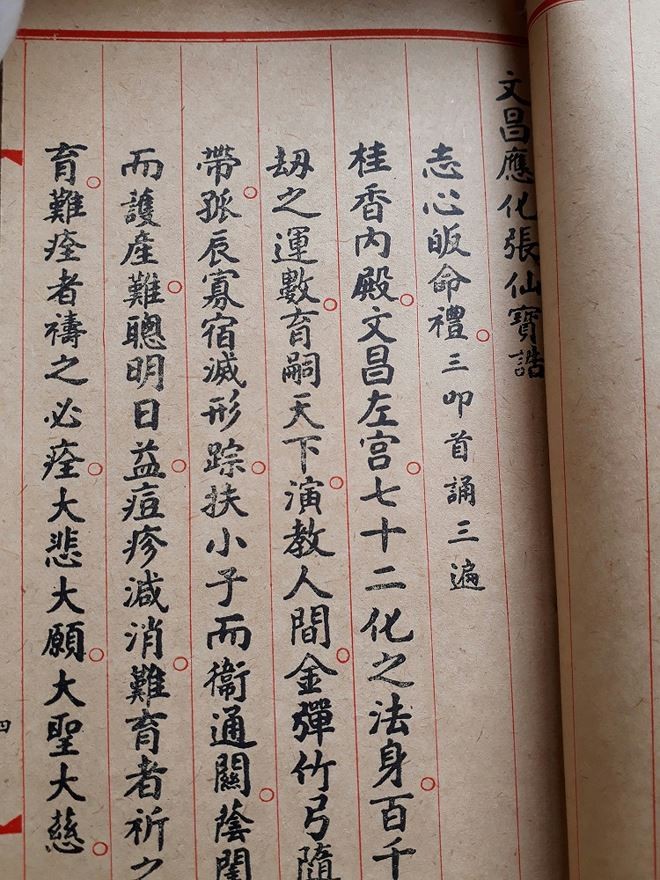 文昌應化張仙寶誥
志心皈命禮。三叩首誦三遍
桂香內殿。文昌左宮。七十二化之法身。百千
刼之運數。育嗣天下。演教人間。金彈竹弓隨
帶。孤辰寡宿滅形踪。扶小子而衞通關。蔭閨
而護產難。聰明日益。痘疹減消。難育者祈之
育。難痊者禱之必痊。大悲大願。大聖大慈。
四